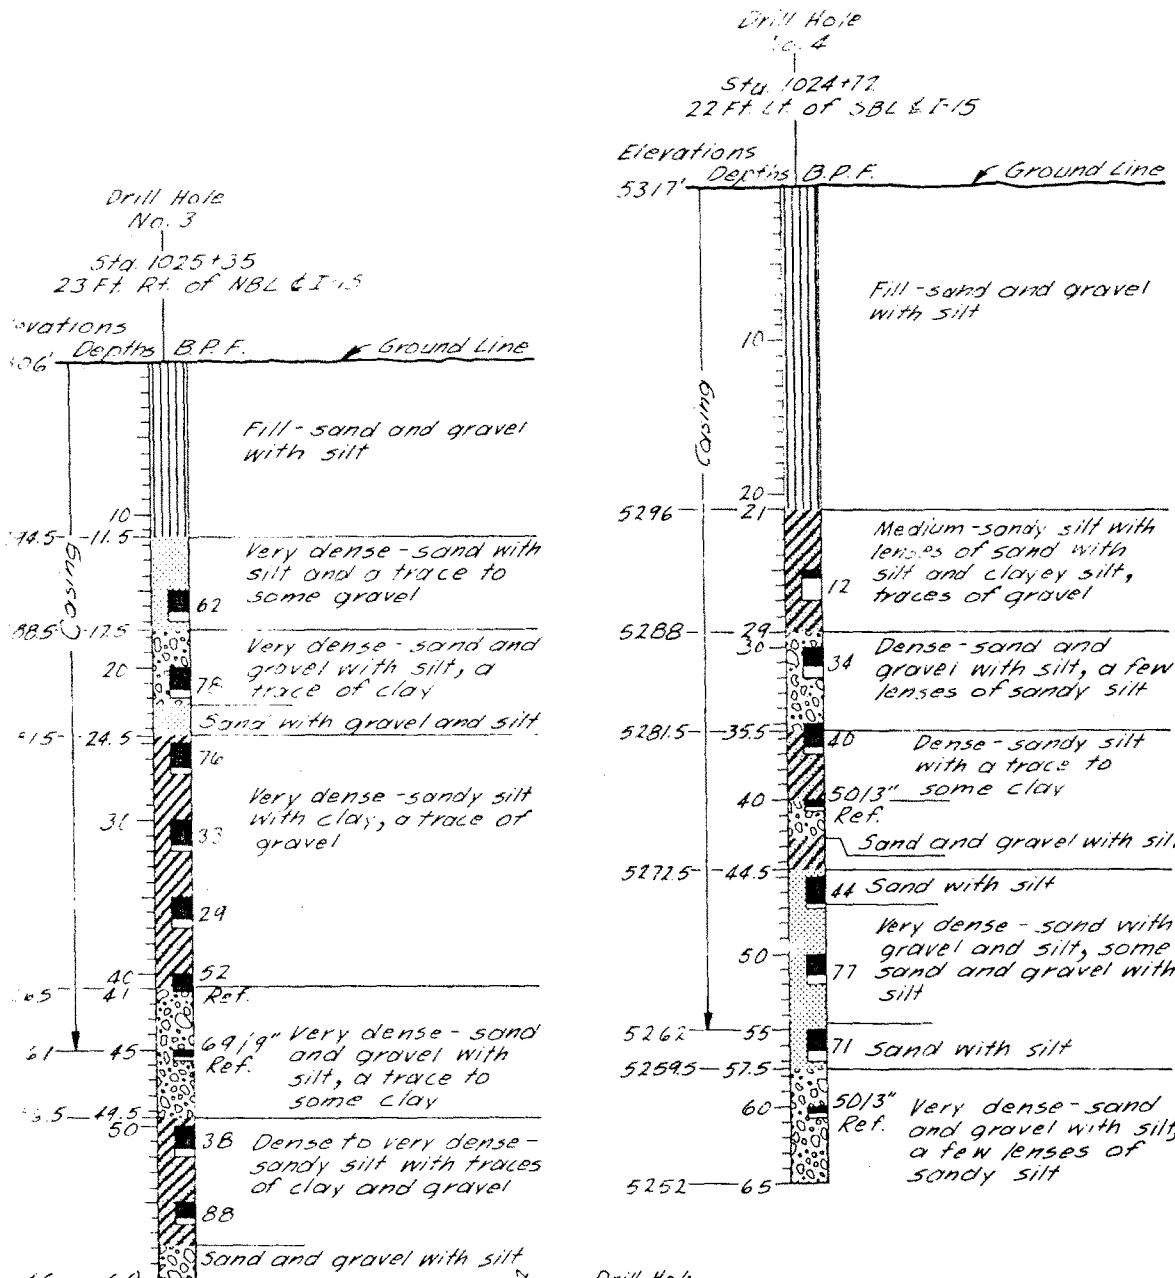 Drill Hole
No. 3
Sta. 1025+35
23 Ft. Rt. of NBL ℄ I-15
Depths B.P.F.
Ground Line
Fill - sand and gravel
with silt
10
11.5
Casing
Very dense - sand with
silt and a trace to
some gravel
62
17.5
Very dense - sand and
gravel with silt, a
trace of clay
20
78
Sand with gravel and silt
24.5
76
Very dense - sandy silt
with clay, a trace of
gravel
33
29
40
52
41
Ref.
69/9"
Ref.
45
Very dense - sand
and gravel with
silt, a trace to
some clay
49.5
50
38
Dense to very dense -
sandy silt with traces
of clay and gravel
88
Sand and gravel with silt
Drill Hole
No. 4
Sta. 1024+72
22 Ft. Lt. of SBL ℄ I-15
Elevations
Depths B.P.F.
5317'
Ground Line
Fill - sand and gravel
with silt
10
Casing
20
5296
21
Medium - sandy silt with
lenses of sand with
silt and clayey silt,
traces of gravel
12
5288
29
30
34
Dense - sand and
gravel with silt, a few
lenses of sandy silt
5281.5
35.5
40
Dense - sandy silt
with a trace to
some clay
40
50/3"
Ref.
Sand and gravel with
5272.5
44.5
44
Sand with silt
Very dense - sand with
gravel and silt, some
sand and gravel with
silt
50
77
5262
55
71
Sand with silt
5259.5
57.5
60
50/3"
Ref.
Very dense - sand
and gravel with silt,
a few lenses of
sandy silt
5252
65
Drill Hole